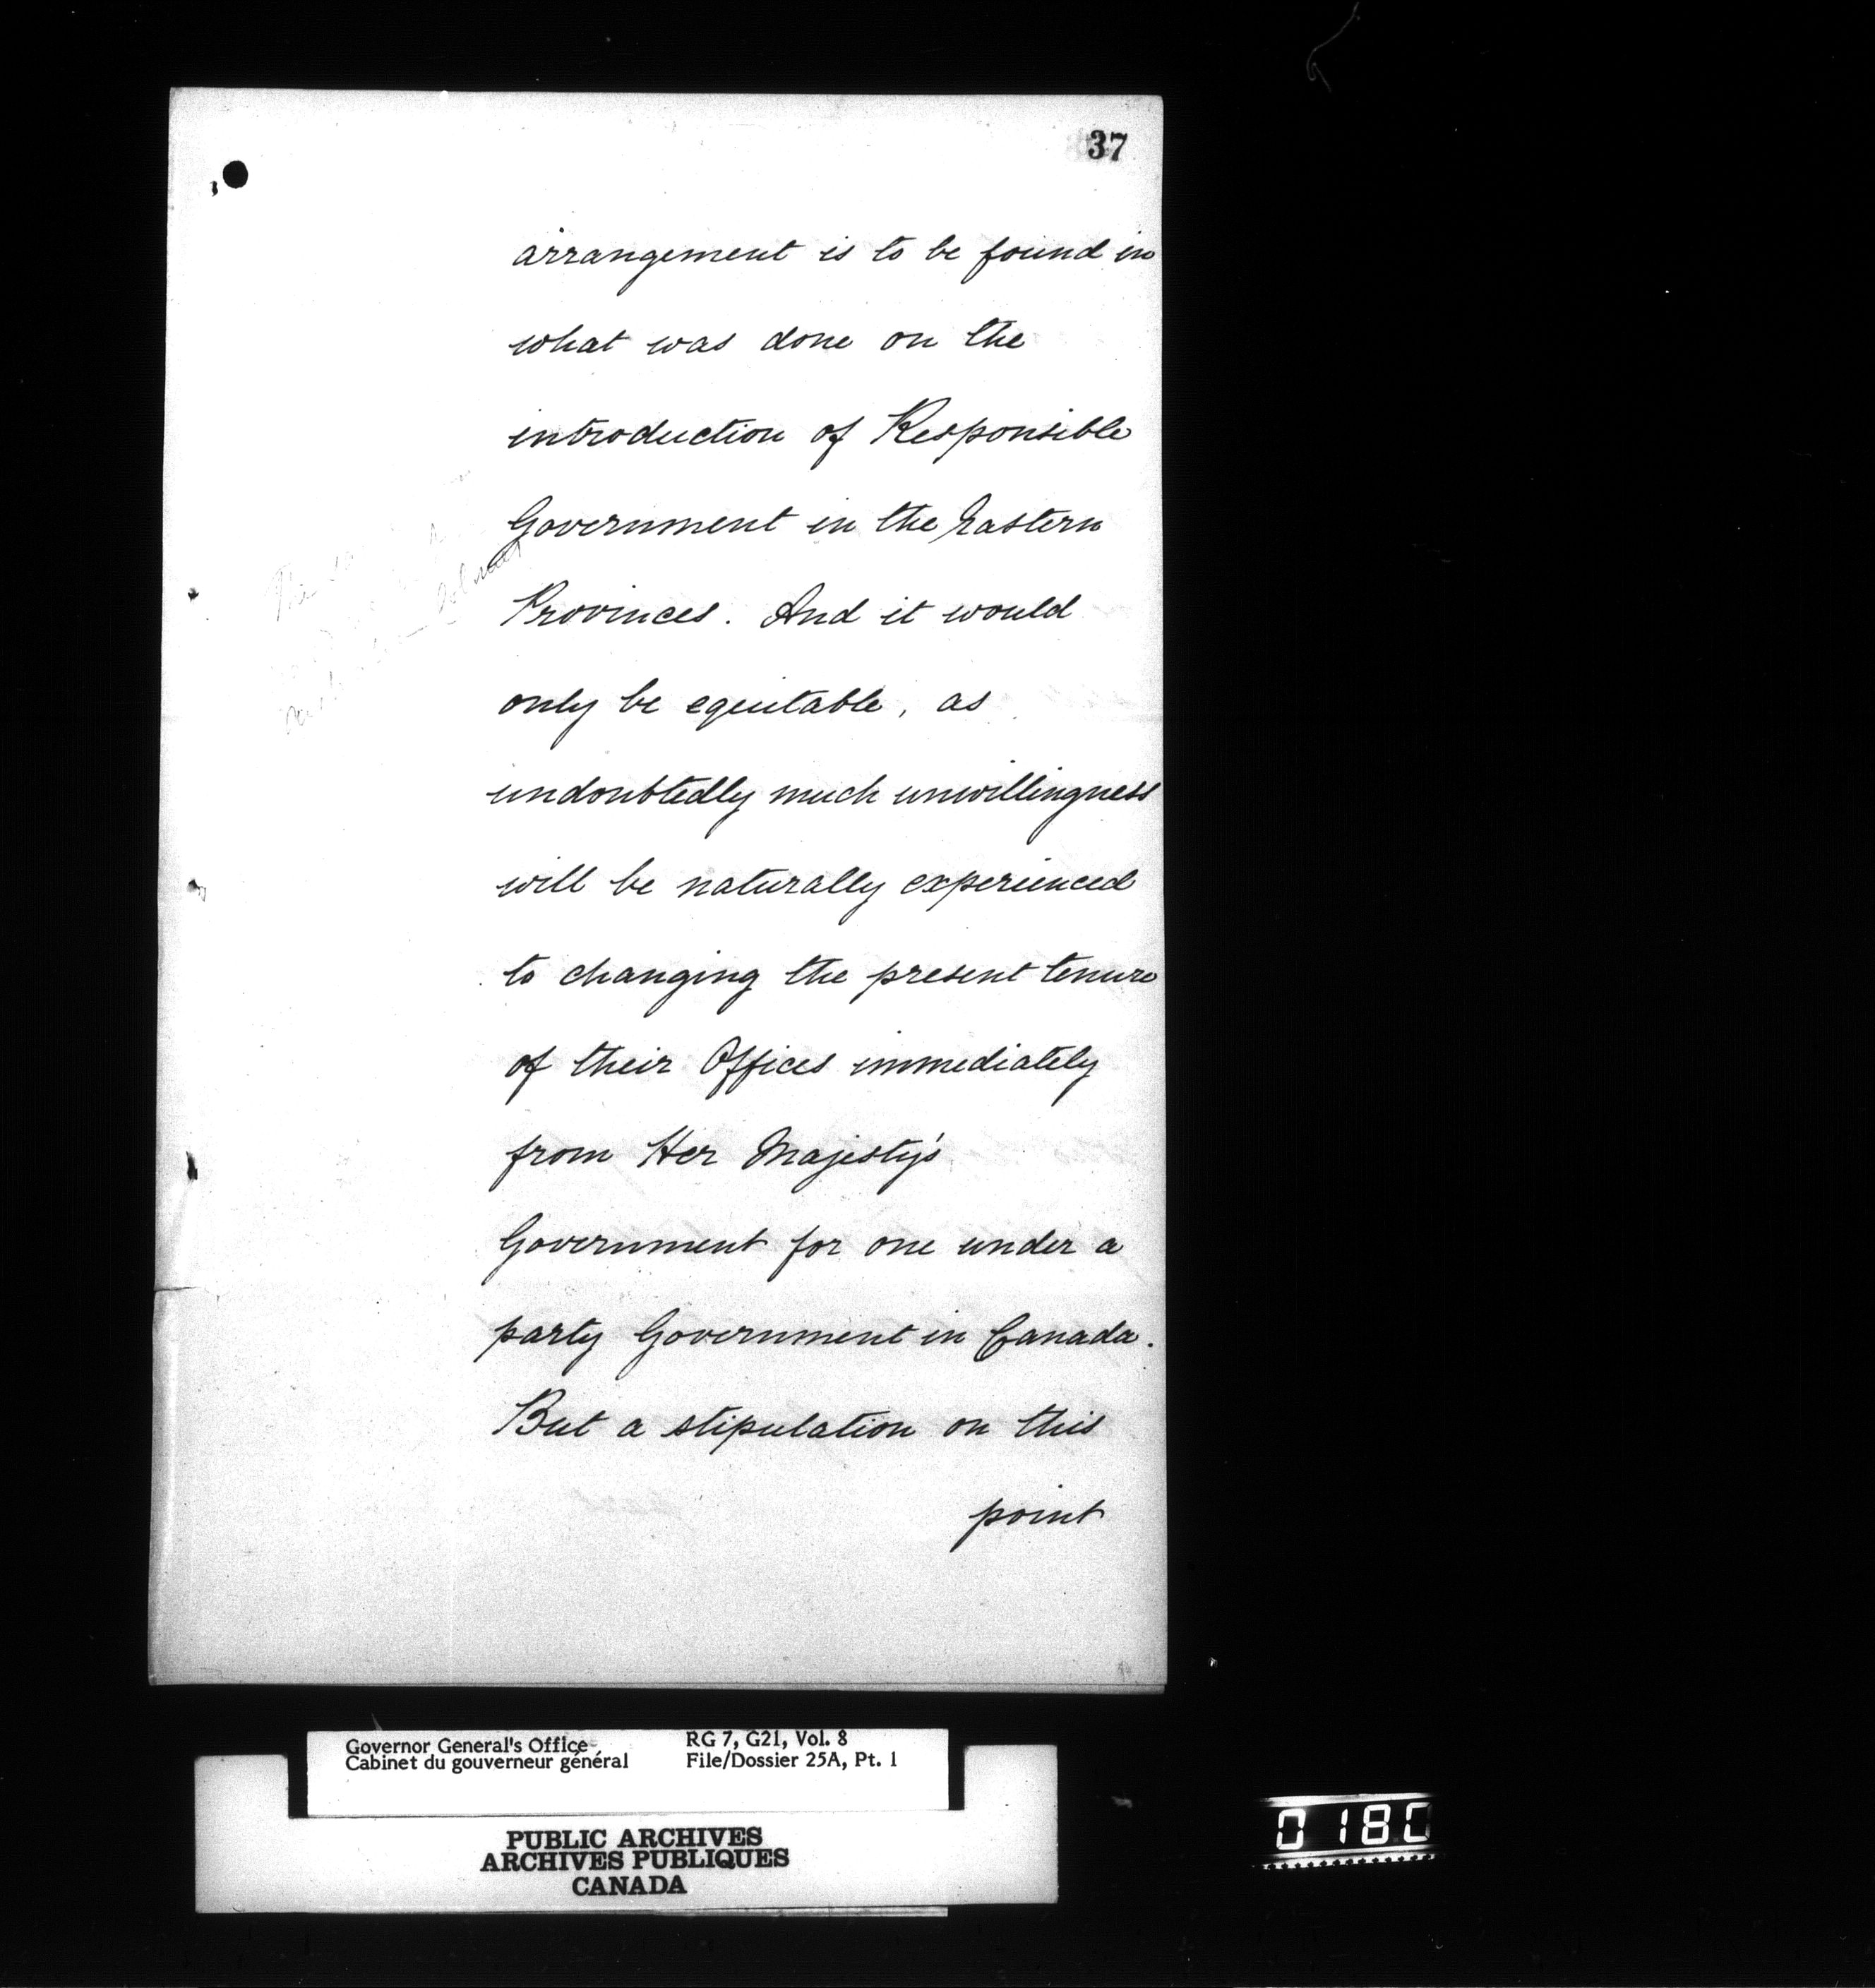 37
arrangement is to be found in
what was done on the
introduction of Responsible
Government in the Eastern
Provinces. And it would
only be equitable, as
undoubtedly much unwillingness
will be naturally experienced
to changing the present tenure
of their Offices immediately
from Her Majesty's
Government for one under a
party Government in Canada.
But a stipulation on this
point
Governor General's Office
Cabinet du gouverneur général
RG 7, G21, Vol. 8
File/Dossier 25A, Pt. 1
PUBLIC ARCHIVES
ARCHIVES PUBLIQUES
CANADA
0180